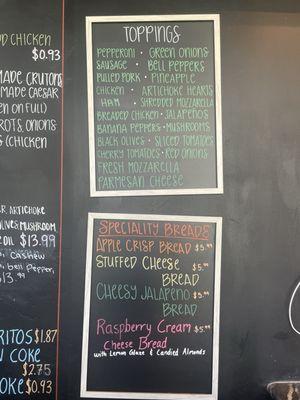 D CHICKEN
$0.93
MADE CRUTONS
MADE CAESAR
EN ON FULL)
ROTS, ONIONS
(CHICKEN
R, ARTICHOKE
LIVES, MUSHROOM,
OIL $13.99
, CASHEW
, Bell Pepper,
13.99
RITOS $1.87
COKE
$2.75
OKE $0.93
TOPPINGS
PEPPERONI · GREEN ONIONS
SAUSAGE · BELL PEPPERS
PULLED PORK · PINEAPPLE
CHICKEN · ARTICHOKE HEARTS
HAM · SHREDDED MOZZARELLA
BREADED CHICKEN · JALAPEÑOS
BANANA PEPPERS · MUSHROOMS
BLACK OLIVES · SLICED TOMATOES
CHERRY TOMATOES · RED ONIONS
FRESH MOZZARELLA
PARMESAN CHEESE
SPECIALITY BREADS
APPLE CRISP BREAD $5.99
STUFFED CHEESE $5.99
BREAD
CHEESY JALAPEÑO $5.99
BREAD
Raspberry Cream $5.99
Cheese Bread
with Lemon Glaze & Candied Almonds